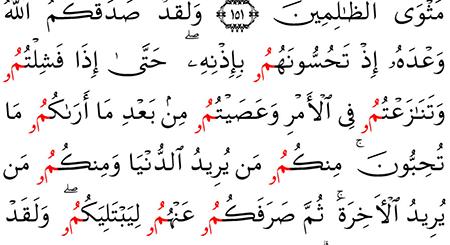 مَثْوَى ٱلظَّٰلِمِينَ ﴿١٥١﴾ وَلَقَدْ صَدَقَكُمُ ٱللَّهُ
وَعْدَهُۥ إِذْ تَحُسُّونَهُمُۥ بِإِذْنِهِۦۖ حَتَّىٰ إِذَا فَشِلْتُمُۥ
وَتَنَٰزَعْتُمُۥ فِى ٱلْأَمْرِ وَعَصَيْتُمُۥ مِنۢ بَعْدِ مَا أَرَىٰكُمُۥ مَا
تُحِبُّونَۚ مِنكُمُۥ مَن يُرِيدُ ٱلدُّنْيَا وَمِنكُمُۥ مَن
يُرِيدُ ٱلْأَخِرَةَۚ ثُمَّ صَرَفَكُمُۥ عَنْهُمُۥ لِيَبْتَلِيَكُمُۥۖ وَلَقَدْ